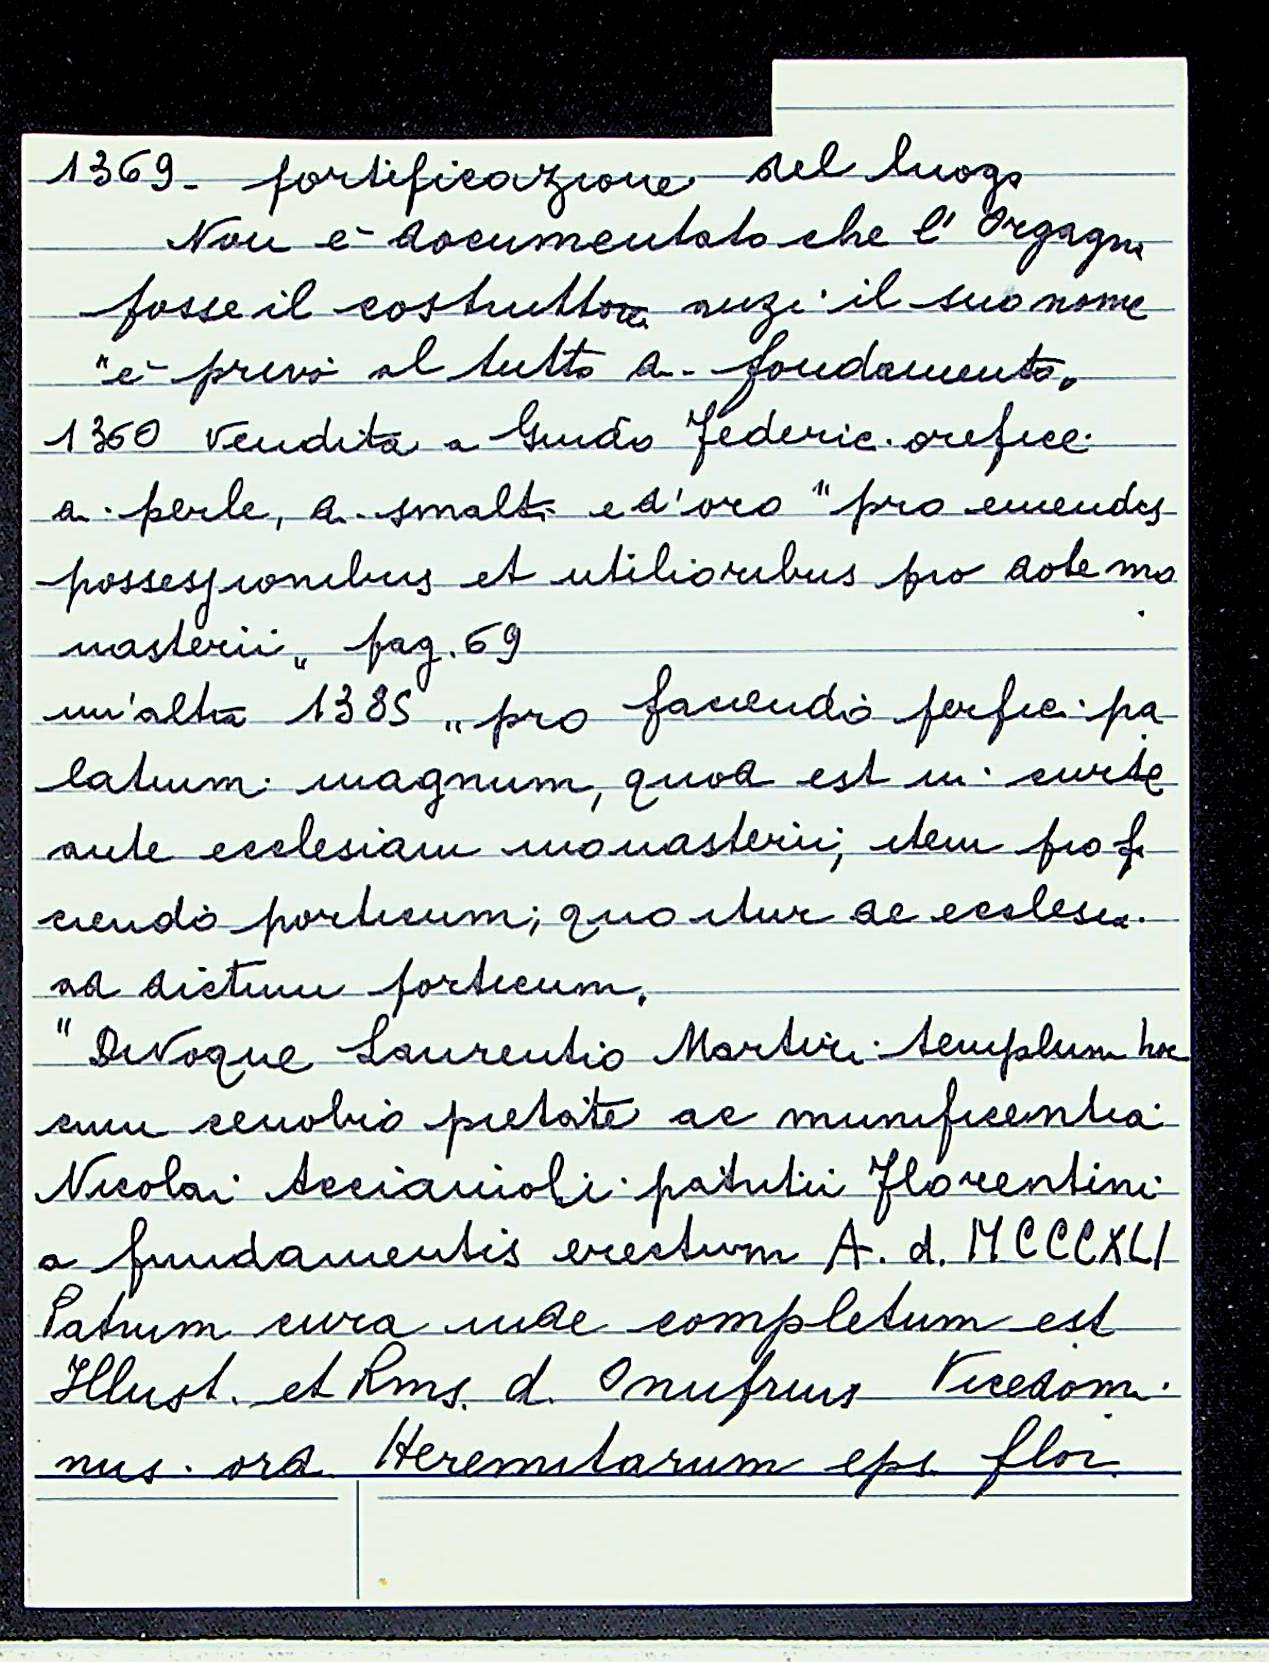 1369 - fortificazione del luogo
Non è documentato che l'Orgagni
fosse il costruttore anzi il suo nome
"è privo al tutto di fondamento"
1360 vendita a Guido Federici orefice
di perle, di smalti e d'oro "pro emendis
possessionibus et utilioribus pro dote mo
nasterii" pag. 69
un'altra 1385 "pro faciendo perfici pa
latium magnum, quod est in curte
ante ecclesiam monasterii; item pro fa
ciendo porticum; quo itur de ecclesia
ad dictum porticum.
"Divoque Laurentio Martiri templum hoc
cum cenobio pietate ac munificentia
Nicolai Acciaiuoli patritii Florentini
a fundamentis erectum A. d. MCCCXLI
Patrum cura inde completum est
Illust. et Rms. d. Onufrius Vicedomi
nus ord. Heremitarum eps. flor.